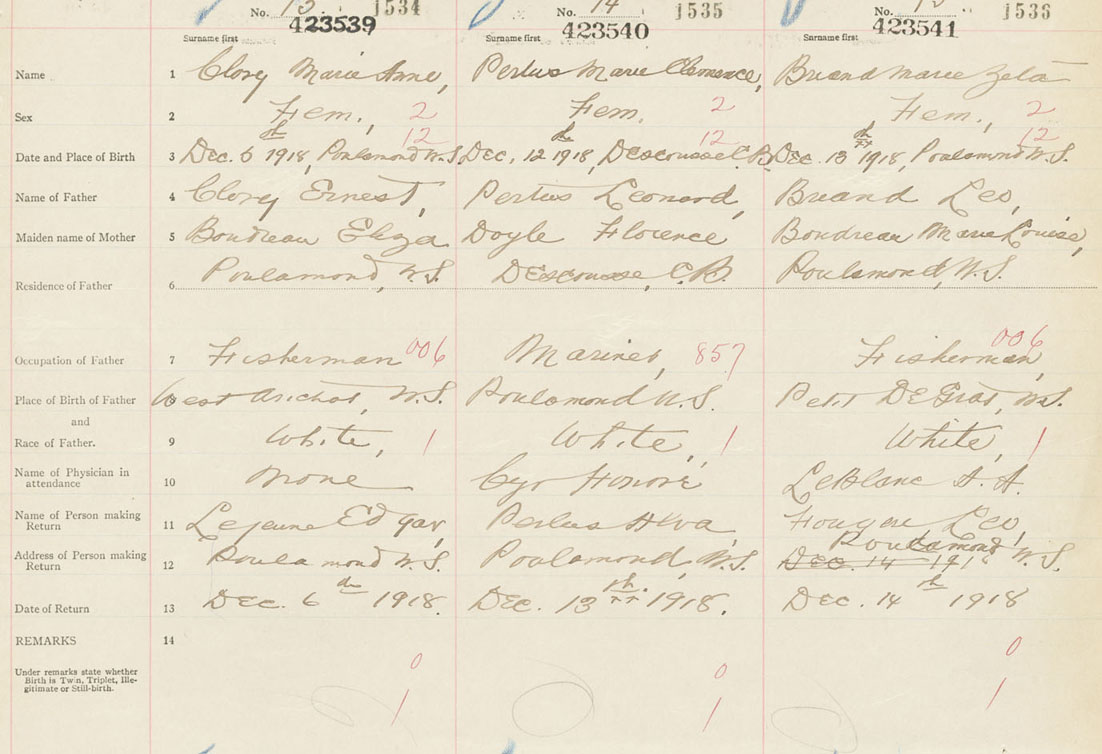 No. 13 1534 No. 14 1535 No. 1536
423539 423540 423541
Surname first Surname first Surname first
Name 1 Clory Marie Anne, Pertus Marie Clemence, Briand Marie Zeta
Sex 2 Fem., 2 Fem. 2 Fem., 2
12 12 12
Date and Place of Birth 3 Dec. 5th 1918, Poulamond N.S. Dec. 12th 1918, Descousse C.B. Dec. 13th 1918, Poulamond N.S.
Name of Father 4 Clory Ernest, Pertus Leonard, Briand Leo,
Maiden name of Mother 5 Boudreau Eliza Doyle Florence Boudreau Marie Louise,
Residence of Father 6 Poulamond, N.S. Descousse, C.B. Poulamond, N.S.
Occupation of Father 7 Fisherman 006 Mariner, 857 Fisherman, 006
Place of Birth of Father 8 West Arichat, N.S. Poulamond N.S. Petit De Grat, N.S.
and
Race of Father. 9 White, 1 White, 1 White, 1
Name of Physician in
attendance 10 None Cyr Honoré LeBlanc A. A.
Name of Person making
Return 11 Lejeune Edgar, Pertus Alva Fougere Leo,
Address of Person making
Return 12 Poulamond N.S. Poulamond, N.S. Dec. 14 191 Poulamond N.S.
Date of Return 13 Dec. 6th 1918. Dec. 13th 1918. Dec. 14th 1918
REMARKS 14
Under remarks state whether
Birth is Twin, Triplet, Ille-
gitimate or Still-birth.
0 0 0
1 1 1